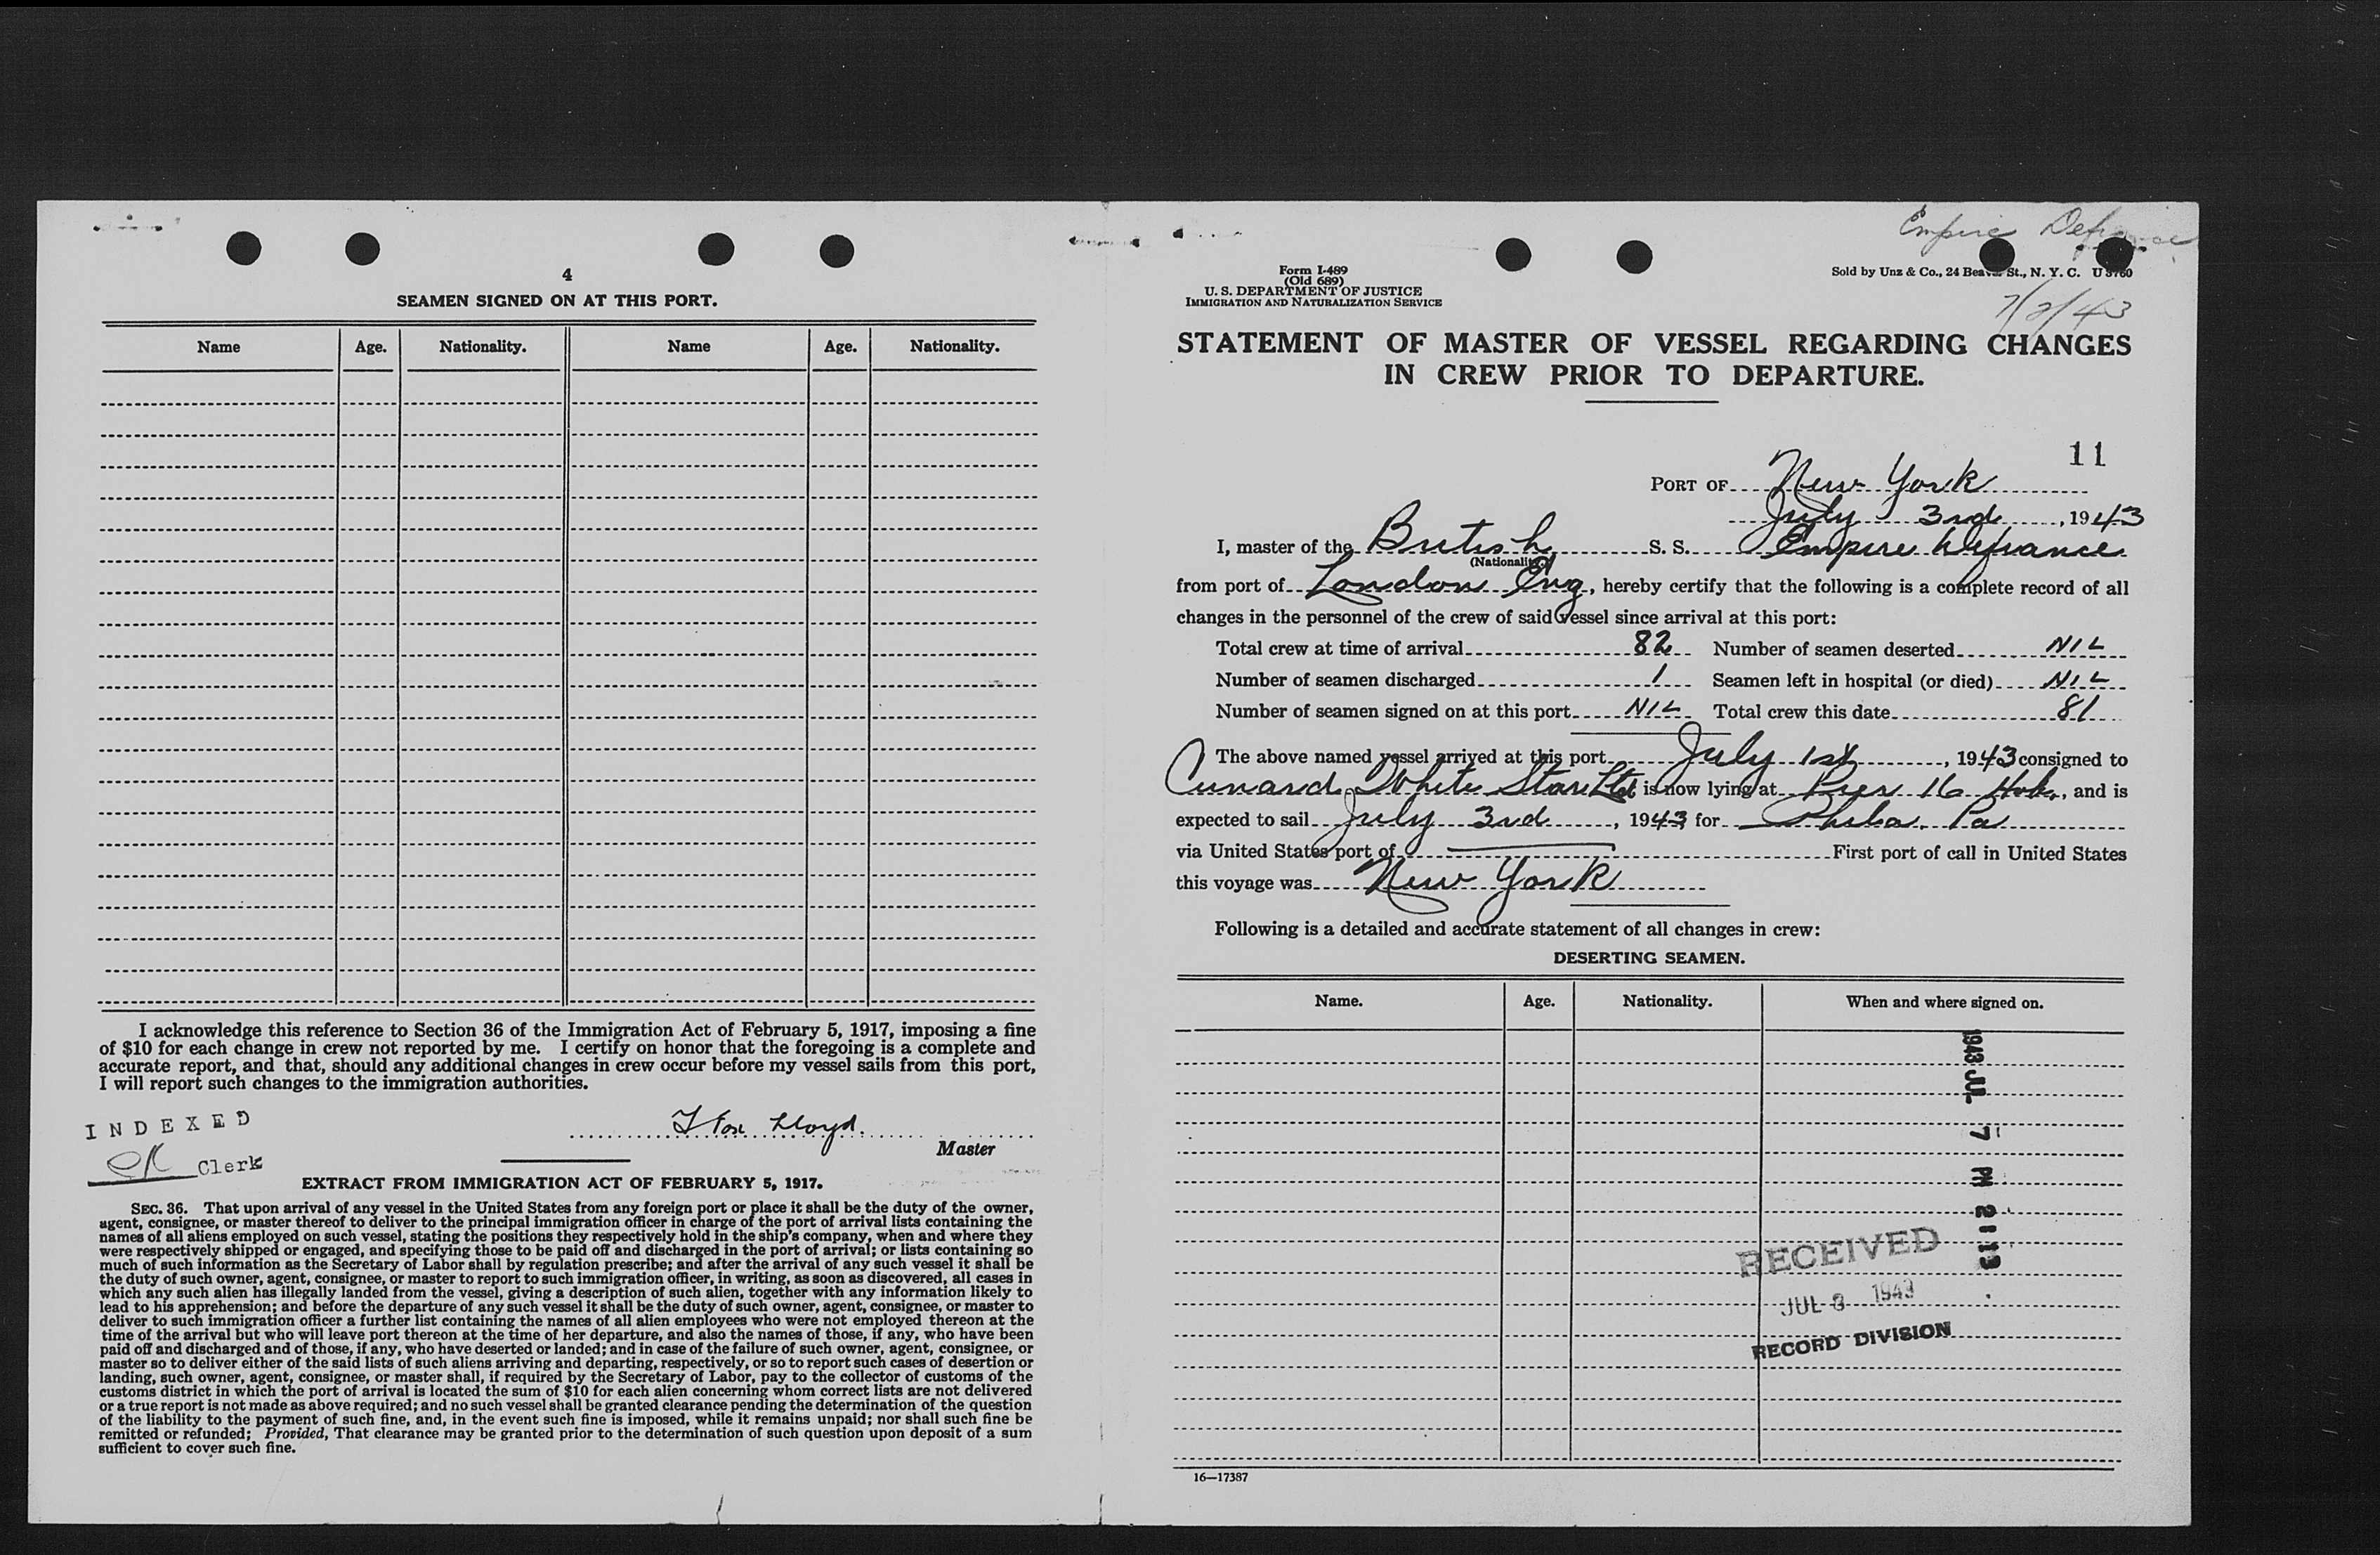 4
SEAMEN SIGNED ON AT THIS PORT.
Name Age. Nationality. Name Age. Nationality.
I acknowledge this reference to Section 36 of the Immigration Act of February 5, 1917, imposing a fine
of $10 for each change in crew not reported by me. I certify on honor that the foregoing is a complete and
accurate report, and that, should any additional changes in crew occur before my vessel sails from this port,
I will report such changes to the immigration authorities.
INDEXED
Lloyd.
Master
Clerk
EXTRACT FROM IMMIGRATION ACT OF FEBRUARY 5, 1917.
SEC. 36. That upon arrival of any vessel in the United States from any foreign port or place it shall be the duty of the owner,
agent, consignee, or master thereof to deliver to the principal immigration officer in charge of the port of arrival lists containing the
names of all aliens employed on such vessel, stating the positions they respectively hold in the ship's company, when and where they
were respectively shipped or engaged, and specifying those to be paid off and discharged in the port of arrival; or lists containing so
much of such information as the Secretary of Labor shall by regulation prescribe; and after the arrival of any such vessel it shall be
the duty of such owner, agent, consignee, or master to report to such immigration officer, in writing, as soon as discovered, all cases in
which any such alien has illegally landed from the vessel, giving a description of such alien, together with any information likely to
lead to his apprehension; and before the departure of any such vessel it shall be the duty of such owner, agent, consignee, or master to
deliver to such immigration officer a further list containing the names of all alien employees who were not employed thereon at the
time of the arrival but who will leave port thereon at the time of her departure, and also the names of those, if any, who have been
paid off and discharged and of those, if any, who have deserted or landed; and in case of the failure of such owner, agent, consignee, or
master so to deliver either of the said lists of such aliens arriving and departing, respectively, or so to report such cases of desertion or
landing, such owner, agent, consignee, or master shall, if required by the Secretary of Labor, pay to the collector of customs of the
customs district in which the port of arrival is located the sum of $10 for each alien concerning whom correct lists are not delivered
or a true report is not made as above required; and no such vessel shall be granted clearance pending the determination of the question
of the liability to the payment of such fine, and, in the event such fine is imposed, while it remains unpaid; nor shall such fine be
remitted or refunded; Provided, That clearance may be granted prior to the determination of such question upon deposit of a sum
sufficient to cover such fine.
Empire Defiance
Form I-489
(Old 689)
U. S. DEPARTMENT OF JUSTICE
IMMIGRATION AND NATURALIZATION SERVICE
Sold by Unz & Co., 24 Beaver St., N. Y. C.
7/2/43
STATEMENT OF MASTER OF VESSEL REGARDING CHANGES
IN CREW PRIOR TO DEPARTURE.
11
PORT OF New York
July 3rd, 1943
I, master of the British S. S. Empire Defiance
(Nationality)
from port of London Eng, hereby certify that the following is a complete record of all
changes in the personnel of the crew of said vessel since arrival at this port:
Total crew at time of arrival 82 Number of seamen deserted NIL
Number of seamen discharged 1 Seamen left in hospital (or died) NIL
Number of seamen signed on at this port NIL Total crew this date 81
The above named vessel arrived at this port July 1st, 1943 consigned to
Cunard White Star Ltd is now lying at Pier 16 Hob., and is
expected to sail July 3rd, 1943 for Phila. Pa
via United States port of First port of call in United States
this voyage was New York
Following is a detailed and accurate statement of all changes in crew:
DESERTING SEAMEN.
Name. Age. Nationality. When and where signed on.
1943 JUL 7 PM 2 13
RECEIVED
JUL 8 1943
RECORD DIVISION
16—17387